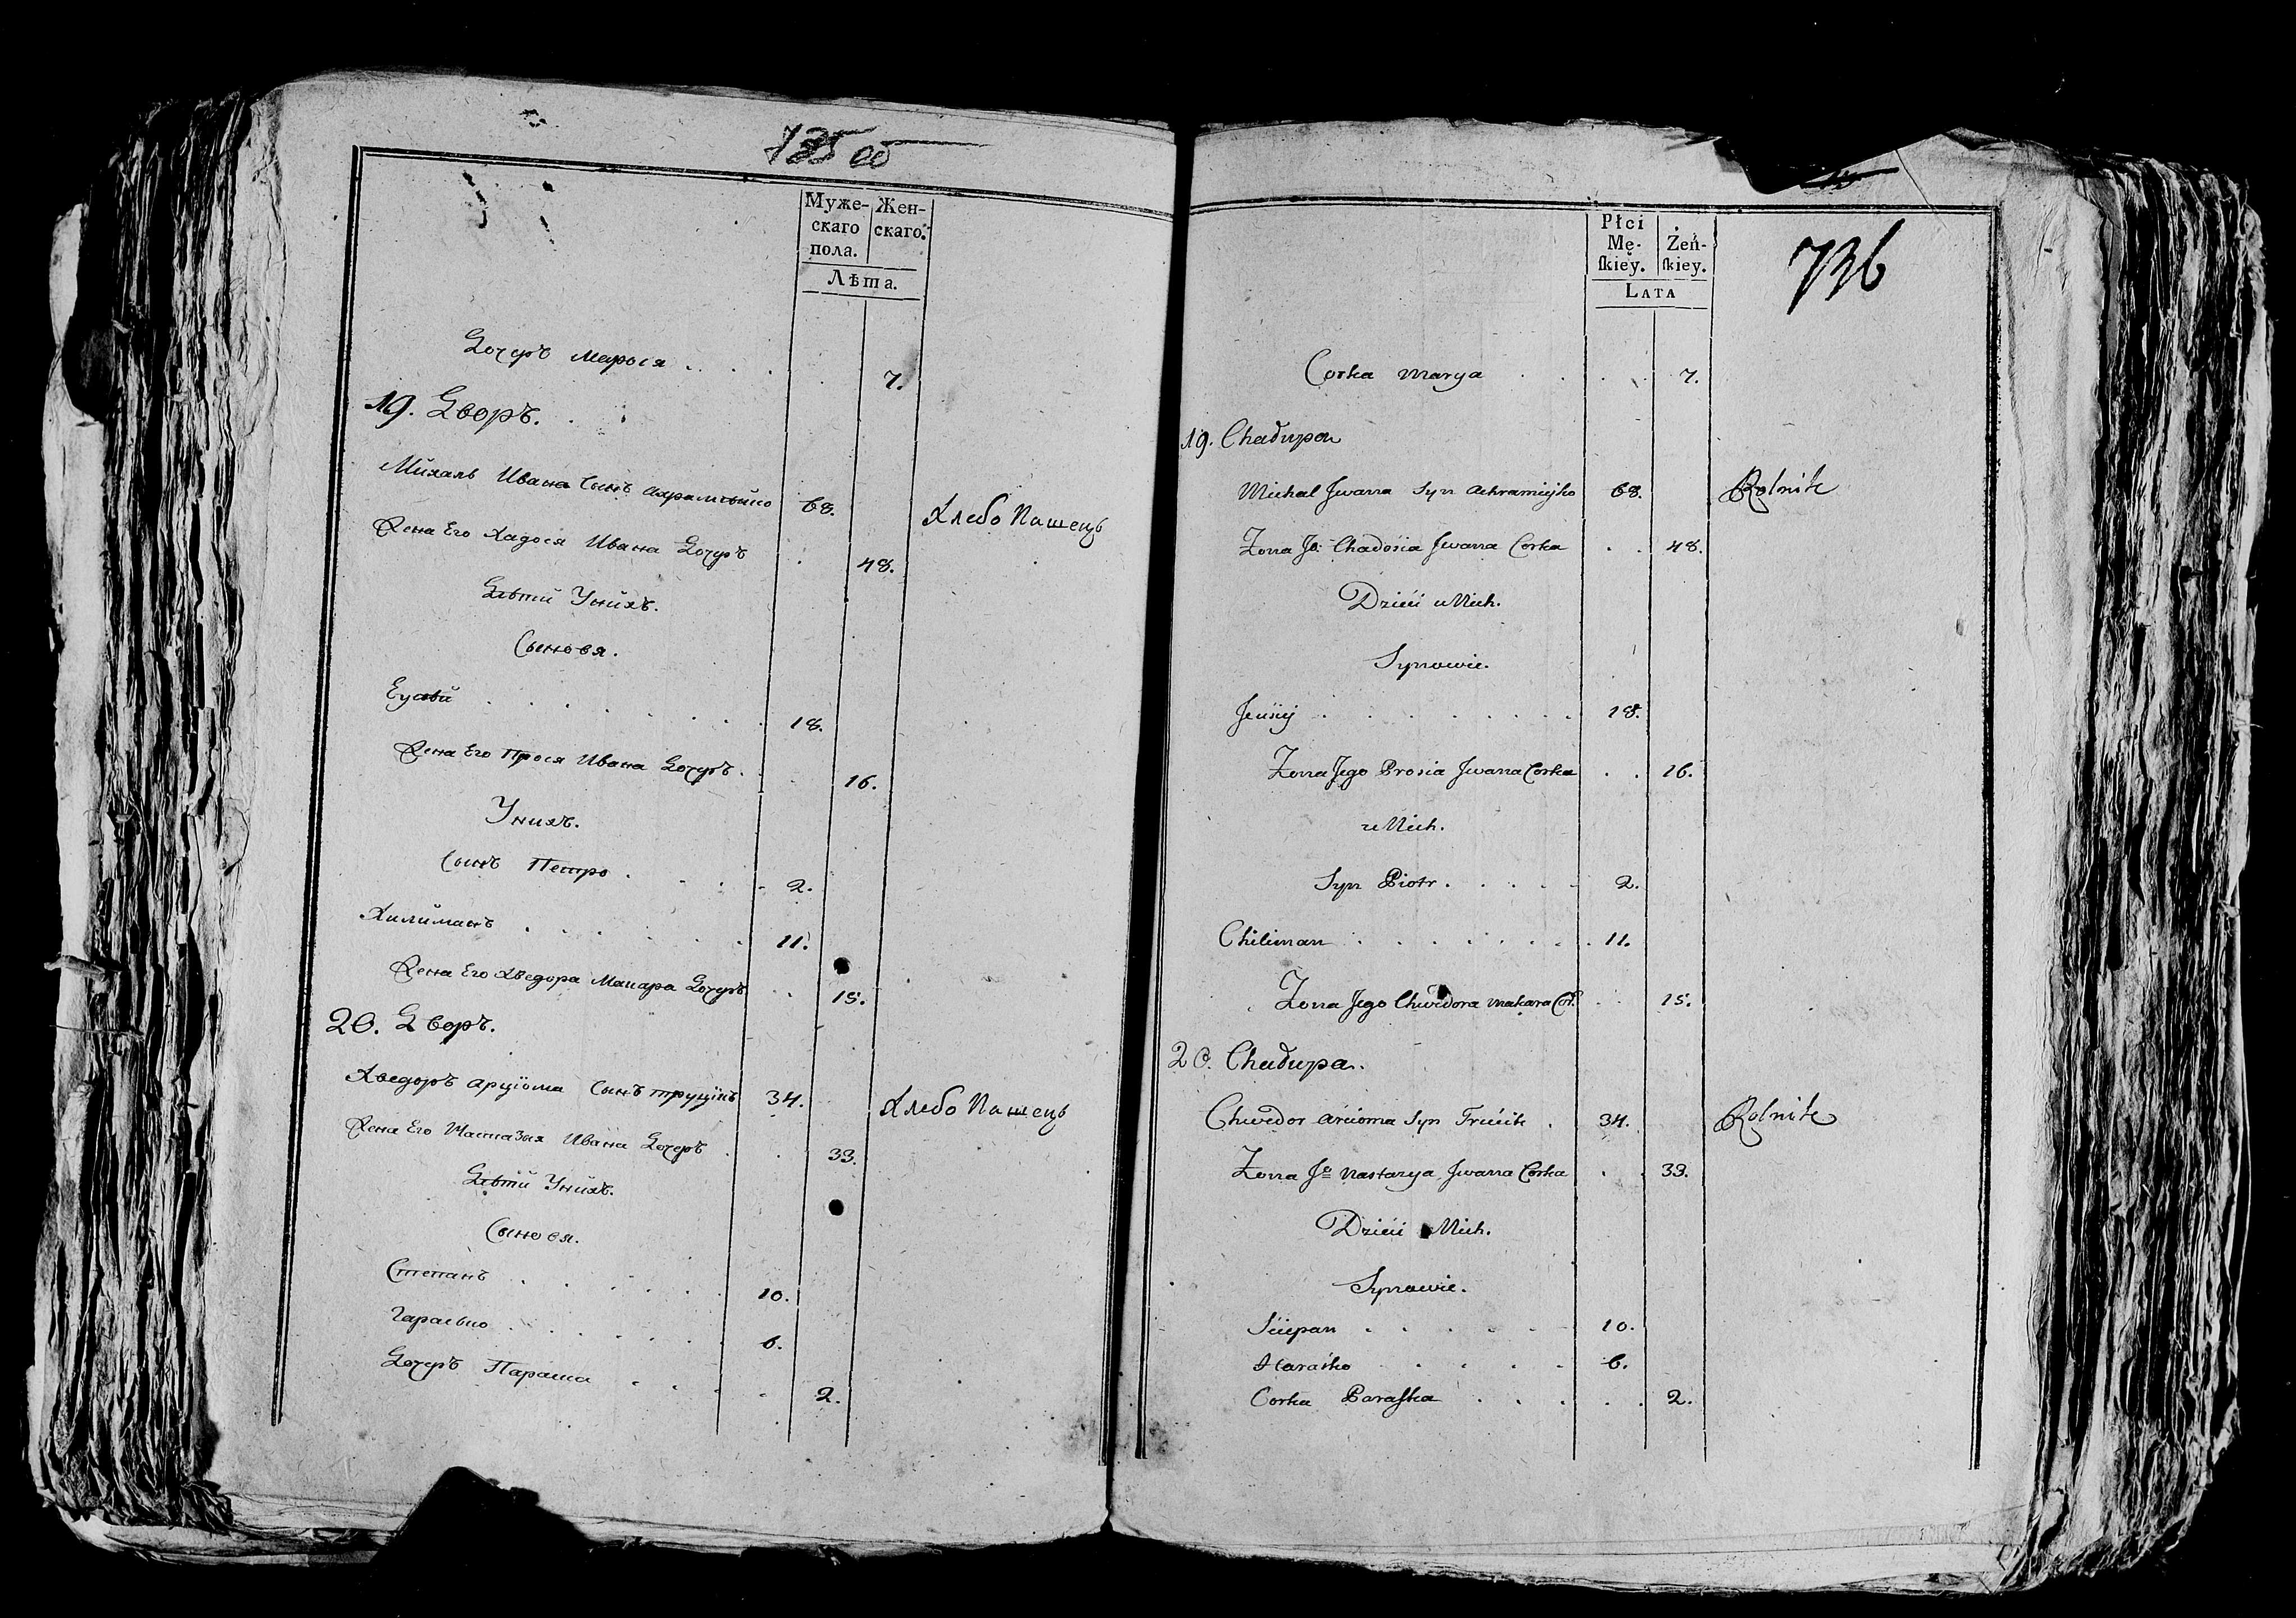 735 об
Муже-
скаго
пола.
Жен-
скаго.
Лѣта.
Дочеръ Марося . . . . 7.
19. Дворъ.
Михалъ Ивана Сынъ Ахрамѣйко 68. Хлебо Пашецъ
Жена Его Хадося Ивана Дочеръ . 48.
Дѣтй Унйхъ.
Сыновя.
Еусѣй . . . . . . . . 18.
Жена Его Прося Ивана Дочеръ . . . 16.
Унихъ.
Сынъ Петро . . . . 2.
Хилиманъ . . . . . . 11.
Жена Его Хведора Макара Дочеръ . . 15.
20. Дворъ.
Хведоръ Арціома Сынъ Труцікъ 34. Хлебо Пашецъ
Жена Его Настазыя Ивана Дочеръ . . 33.
Дѣтй Унйхъ.
Сыновя.
Степанъ . . . . . . 10.
Гараська . . . . . . 6.
Дочеръ Параска . . . . 2.
736
Płci
Mę-
skiey.
Żeń-
skiey.
Lata
Corka Marya . . . . 7.
19. Chałupa
Michal Jwana Syn Achramiejko 68. Rolnik
Zona Jo. Chadosia Jwana Corka . . 48.
Dzieci u Nich.
Synowie.
Jeusiej . . . . . . . . 18.
Zona Jego Prosia Jwana Corka . . 16.
u Nich.
Syn Piotr . . . . . 2.
Chiliman . . . . . . . . 11.
Zona Jego Chwedora Makara Cor. . . 15.
20. Chałupa.
Chwedor Arcioma Syn Trucik . 34. Rolnik
Zona Jo Nastazya Jwana Corka . . 33.
Dzieci u Nich.
Synowie.
Sciepan . . . . . . 10.
Haraśko . . . . . 6.
Corka Paraska . . . . . 2.